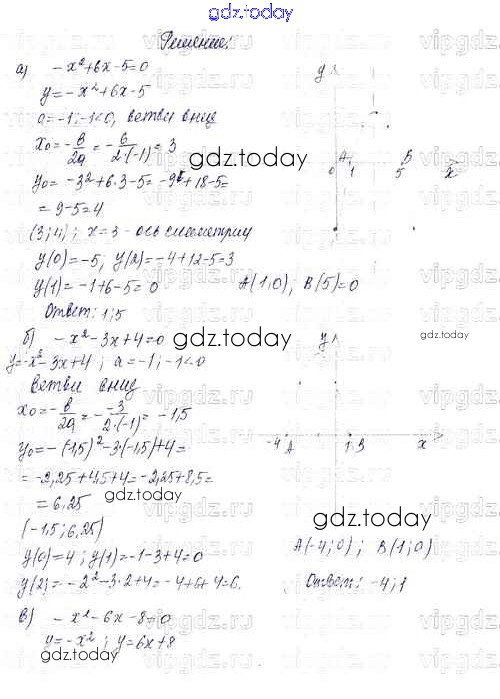 gdz.today
Решение:
а) -x²+6x-5=0
y=-x²+6x-5
a=-1; -1<0, ветви вниз
x₀=-в/2a=-6/2·(-1)=3
y₀=-3²+6·3-5=-9+18-5=
=9-5=4
(3;4); x=3-ось симметрии
y(0)=-5; y(2)=-4+12-5=3
y(1)=-1+6-5=0
A(1;0); B(5)=0
Ответ: 1;5
y
A
B
0
1
5
x
gdz.today
б) -x²-3x+4=0
y=-x²-3x+4; a=-1; -1<0
ветви вниз
x₀=-в/2a=--3/2·(-1)=-1,5
y₀=-(-1,5)²-3·(-1,5)+4=
=-2,25+4,5+4=-2,25+8,5=
=6,25
(-1,5;6,25)
y(0)=4; y(1)=-1-3+4=0
y(2)=-2²-3·2+4=-4+6+4=6.
y
-4
A
1
B
x
A(-4;0); B(1;0)
Ответ: -4;1
gdz.today
gdz.today
gdz.today
gdz.today
в) -x²-6x-8=0
y=-x²; y=6x+8
gdz.today
gdz.today
vipgdz.ru